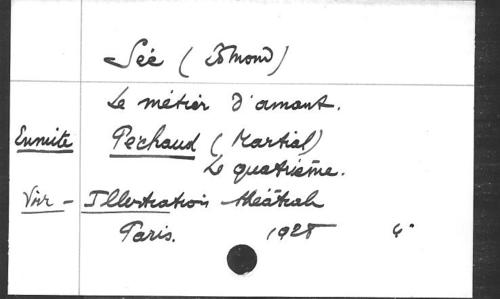 Sée (Edmond)
Le métier d'amant.
Ensuite Perhaud (Martial)
Le quatrième.
Voir - Illustration théâtrale
Paris. 1928 4°